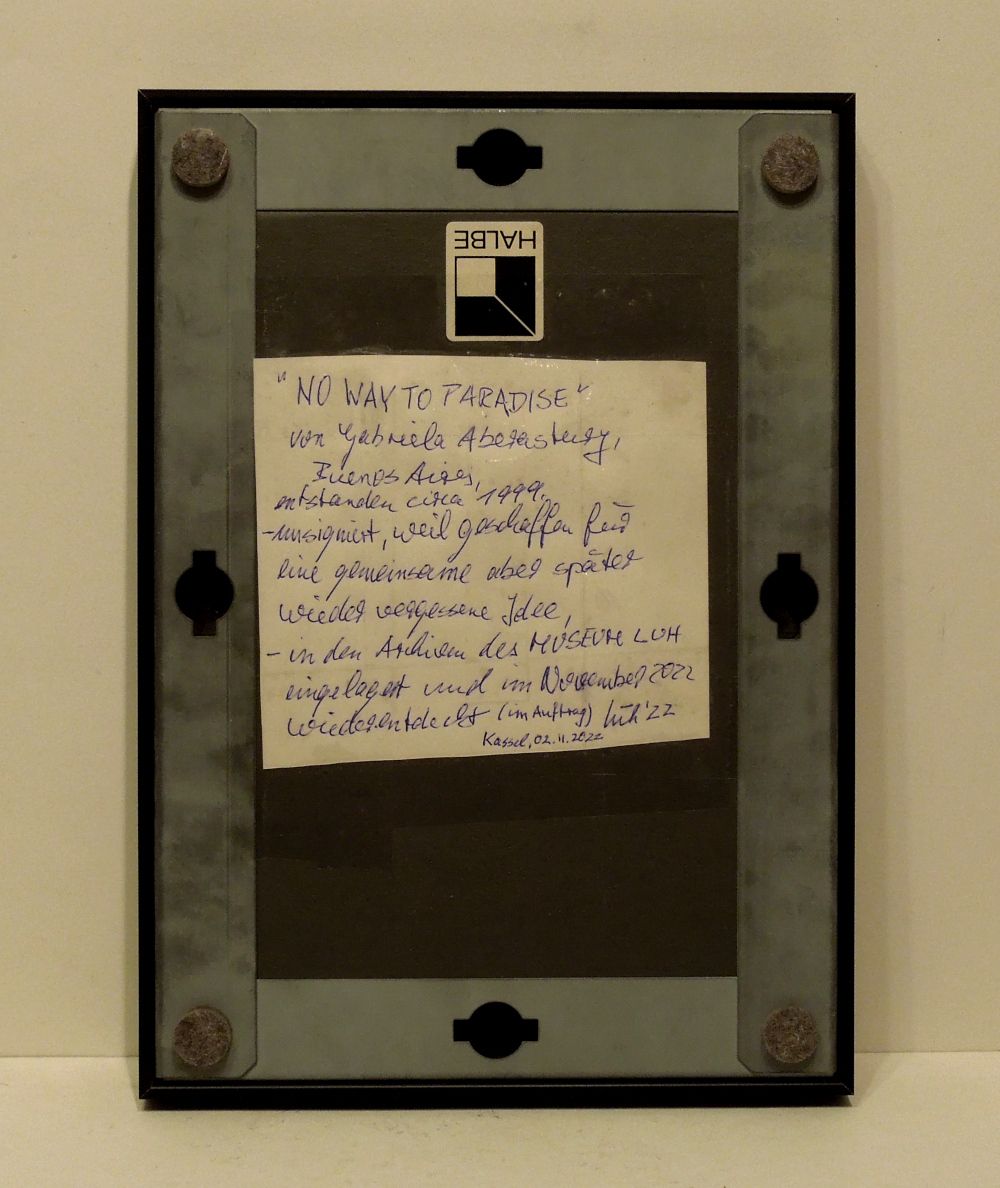 HALBE
"NO WAY TO PARADISE"
von Gabriela Aberastury,
Buenos Aires,
entstanden circa 1999.
-unsigniert, weil geschaffen für
eine gemeinsame aber später
wieder vergessene Idee,
- in den Archiven des MUSEUM LÜH
eingelagert und im November 2022
wiederentdeckt (im Auftrag) Lüh '22
Kassel, 02.11.2022